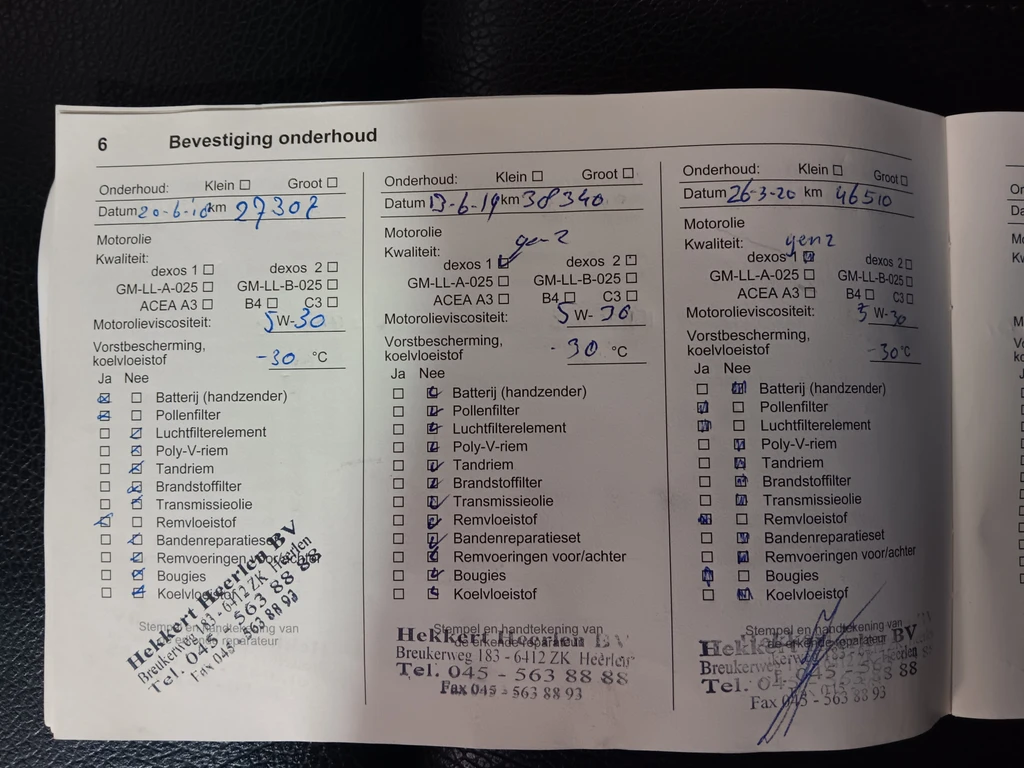 6 Bevestiging onderhoud
Onderhoud: Klein ☐ Groot ☐
Datum 20-6-18 km 27307
Motorolie
Kwaliteit:
dexos 1 ☐ dexos 2 ☐
GM-LL-A-025 ☐ GM-LL-B-025 ☐
ACEA A3 ☐ B4 ☐ C3 ☐
Motorolieviscositeit: 5 W-30
Vorstbescherming,
koelvloeistof -30 °C
Ja Nee
☒ ☐ Batterij (handzender)
☒ ☐ Pollenfilter
☐ ☒ Luchtfilterelement
☐ ☒ Poly-V-riem
☐ ☒ Tandriem
☐ ☒ Brandstoffilter
☐ ☒ Transmissieolie
☒ ☐ Remvloeistof
☐ ☒ Bandenreparatieset
☐ ☒ Remvoeringen voor/achter
☐ ☒ Bougies
☐ ☒ Koelvloeistof
Stempel en handtekening van
de erkende reparateur
Hekkert Heerlen BV
Breukerweg 183 - 6412 ZK Heerlen
Tel. 045 - 563 88 88
Fax 045 - 563 88 93
Onderhoud: Klein ☐ Groot ☐
Datum 13-6-19 km 38340
Motorolie
Kwaliteit: gen 2
dexos 1 ☒ dexos 2 ☐
GM-LL-A-025 ☐ GM-LL-B-025 ☐
ACEA A3 ☐ B4 ☐ C3 ☐
Motorolieviscositeit: 5 W-30
Vorstbescherming,
koelvloeistof -30 °C
Ja Nee
☐ ☒ Batterij (handzender)
☐ ☒ Pollenfilter
☐ ☒ Luchtfilterelement
☐ ☒ Poly-V-riem
☐ ☒ Tandriem
☐ ☒ Brandstoffilter
☐ ☒ Transmissieolie
☐ ☒ Remvloeistof
☐ ☒ Bandenreparatieset
☐ ☒ Remvoeringen voor/achter
☐ ☒ Bougies
☐ ☒ Koelvloeistof
Stempel en handtekening van
de erkende reparateur
Hekkert Heerlen BV
Breukerweg 183 - 6412 ZK Heerlen
Tel. 045 - 563 88 88
Fax 045 - 563 88 93
Onderhoud: Klein ☐ Groot ☐
Datum 26-3-20 km 46510
Motorolie
Kwaliteit: gen 2
dexos 1 ☒ dexos 2 ☐
GM-LL-A-025 ☐ GM-LL-B-025 ☐
ACEA A3 ☐ B4 ☐ C3 ☐
Motorolieviscositeit: 5 W-30
Vorstbescherming,
koelvloeistof -30 °C
Ja Nee
☐ ☒ Batterij (handzender)
☒ ☐ Pollenfilter
☒ ☐ Luchtfilterelement
☐ ☒ Poly-V-riem
☐ ☒ Tandriem
☐ ☒ Brandstoffilter
☐ ☒ Transmissieolie
☒ ☐ Remvloeistof
☐ ☒ Bandenreparatieset
☐ ☒ Remvoeringen voor/achter
☒ ☐ Bougies
☐ ☒ Koelvloeistof
Stempel en handtekening van
de erkende reparateur
Hekkert Heerlen BV
Breukerweg 183 - 6412 ZK Heerlen
Tel. 045 - 563 88 88
Fax 045 - 563 88 93